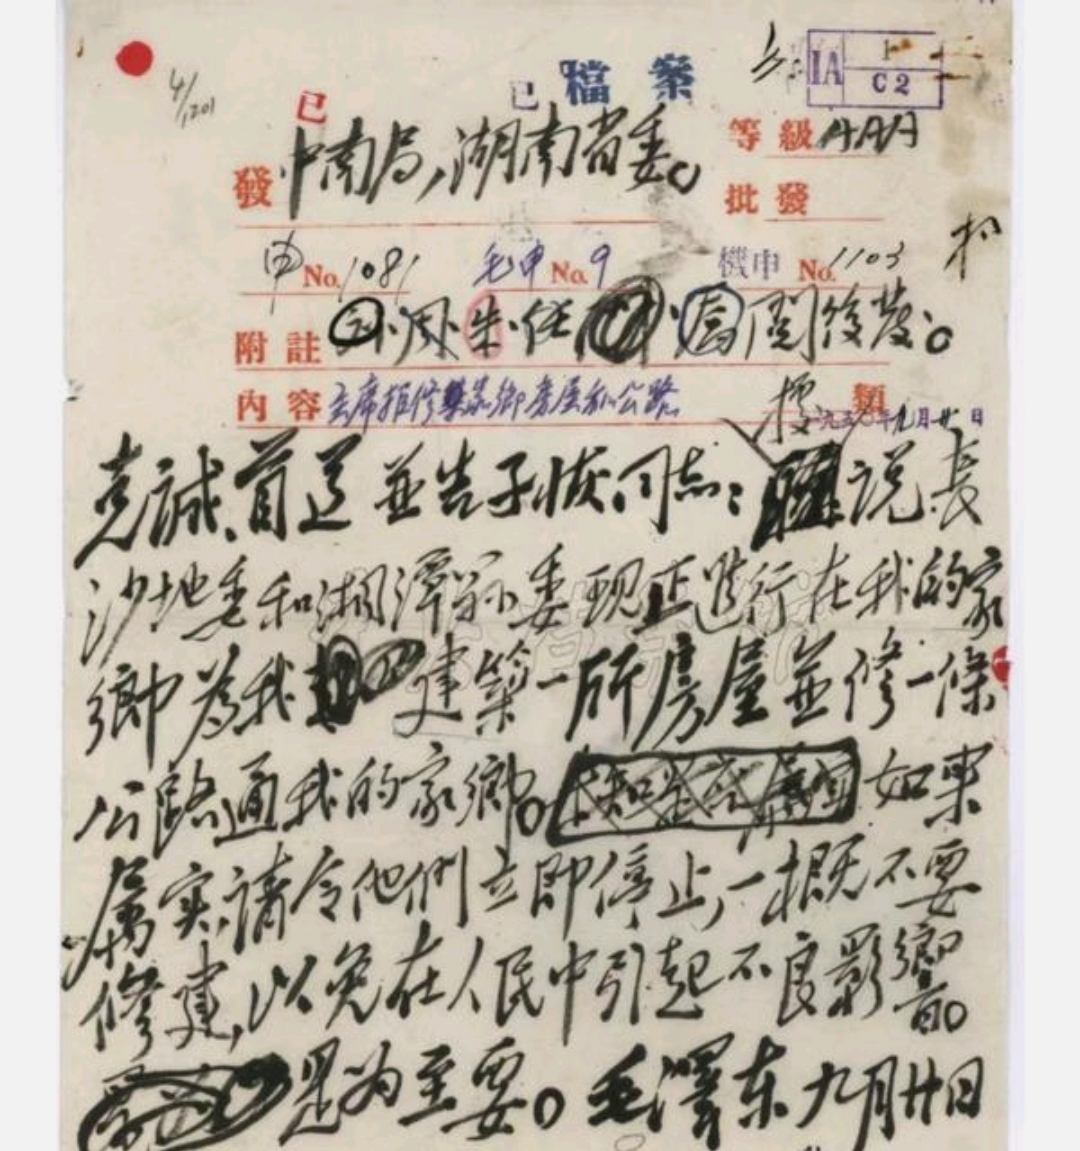 4/1201
已 已 檔案 IA 1 C2
發 中南局,湖南省委。 等級 AAAA
批發
申 No. 1081 毛申 No. 9 機申 No. 1103
附註 刘、周、朱、任 閱後發。
內容 主席拒修築家鄉房屋和公路 類
一九五〇年九月廿日
克誠、首道並告子恢同志:據說長
沙地委和湘潭縣委现正進行在我的家
鄉為我建築一所房屋並修一條
公路通我的家鄉。如果
屬实,請令他們立即停止,一概不要
修建,以免在人民中引起不良影響。
是为至要。毛澤东九月廿日